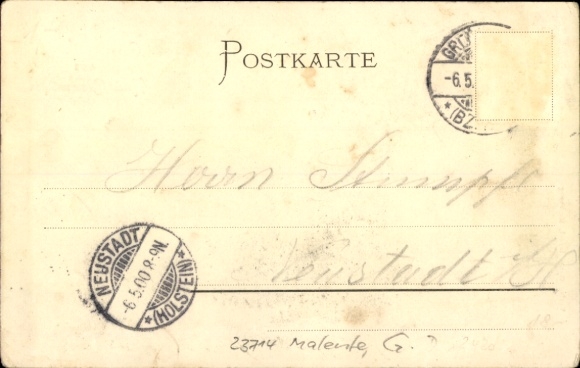 POSTKARTE
GRE
-6.5.
*(BZ.
Herrn Stumpf
Neustadt H
NEUSTADT
-6.5.00.8-9N.
*(HOLSTEIN)*
23714 Malente, G. ?